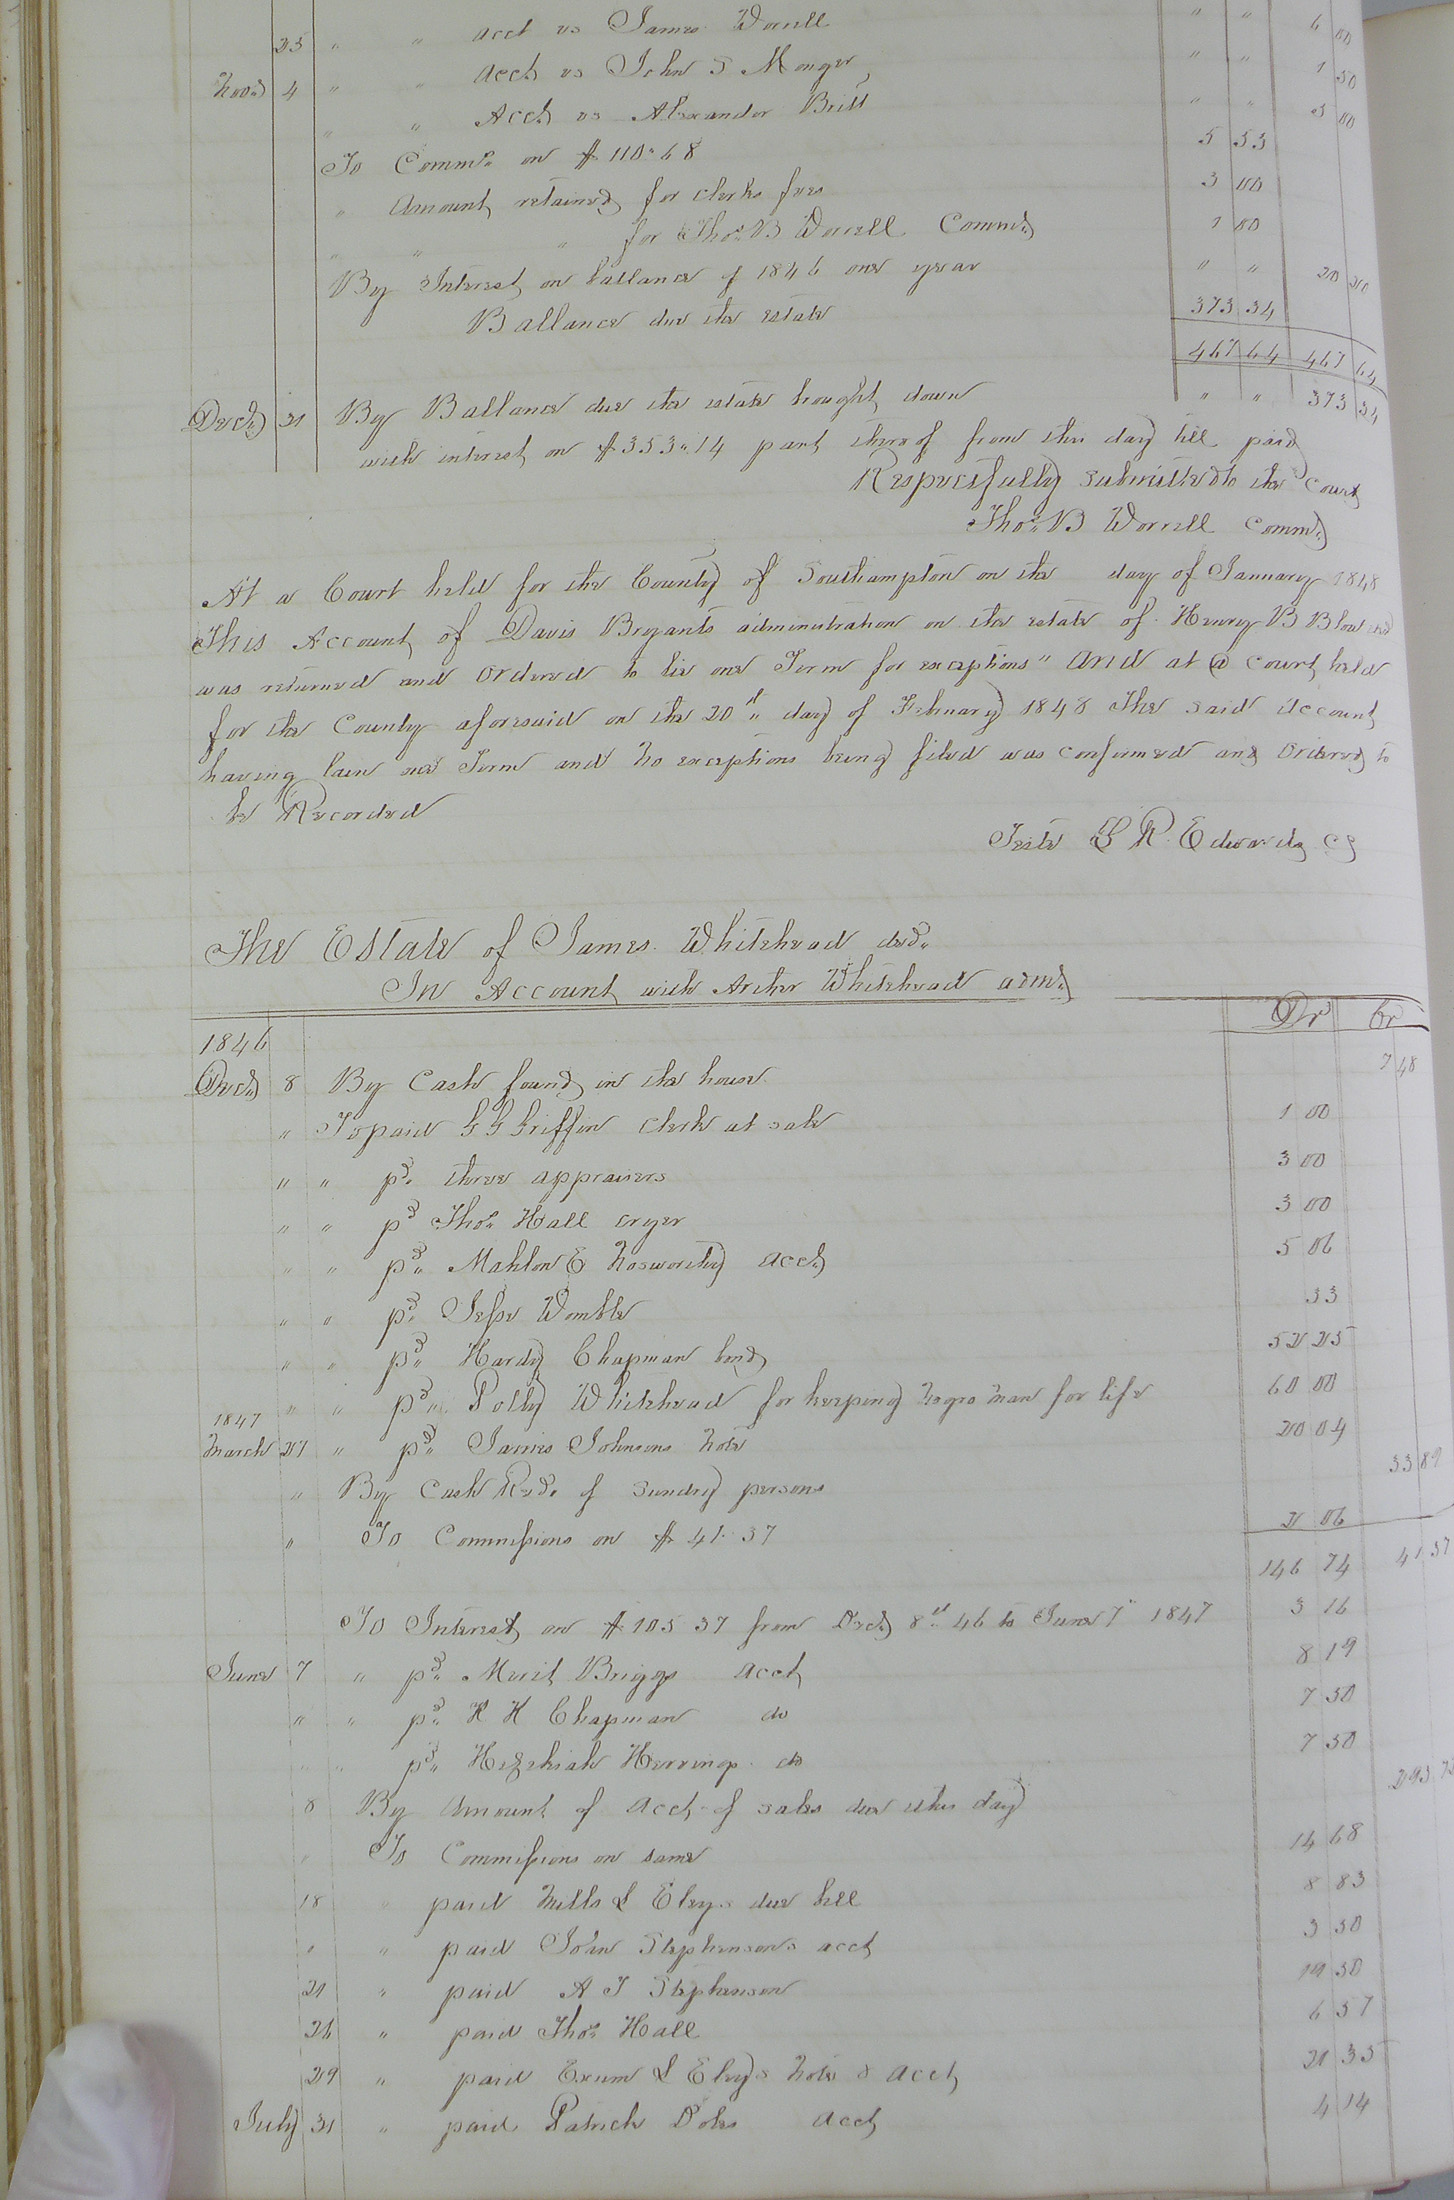 25 " " acct vs James Worrell " " 6 00
Novr 4 " " Acct vs John S Monger " " 1 50
" " Acct vs Alexander Britt " " 3 00
To Commns on $110.68 5 53
" Amount retained for clerks fees 3 00
" " " for Thos B Worrell Commr 1 00
By Interest on ballance of 1846 one year " " 20 20
Ballance due the estate 373 34
467 64 467 64
Decr 31 By Ballance due the estate brought down " " 373 34
with interest on $353.14 part thereof from this day till paid
Respectfully submitted to the Court
Thos B Worrell Commr
At a Court held for the County of Southampton on the day of January 1848
This Account of Davis Bryants administration on the estate of Henry B Blow decd
was returned and Ordered to lie one Term for exceptions" And at a Court held
for the County aforesaid on the 20th day of February 1848 The said Account
having lain one Term and no exceptions being filed was confirmed and Ordered to
be Recorded
Teste L R Edwards CC
The Estate of James Whitehead decd
In Account with Archer Whitehead admr
Dr Cr
1846
Decr 8 By Cash found in the house 7 48
" To paid G G Griffin Clerk at sale 1 00
" " pd three appraisers 3 00
" " pd Thos Hall cryer 3 00
" " pd Mahlon E Nosworthy acct 5 06
" " pd Jesse Womble 33
" " pd Hardy Chapman bond 52 25
" " pd Polly Whitehead for keeping negro man for life 60 00
1847
March 27 " pd James Johnsons note 20 04
" By Cash Recd of sundry persons 33 89
" To Commissions on $41.37 2 06
146 74 41 37
To Interest on $105 37 from Decr 8th 46 to June 7 1847 3 16
June 7 " pd Merit Briggs acct 8 19
" " pd H H Chapman do 7 50
" " pd Hezekiah Herring do 7 50
8 By Amount of Acct of sales due this day 293 73
" To Commissions on same 14 68
18 " paid Mills L Eley's due bill 8 83
" " paid John Stephenson's acct 3 50
21 " paid A J Stephenson 19 50
26 " paid Thos Hall 6 57
29 " paid Exum L Eley's note & acct 21 35
July 31 " paid Patrick Doles acct 4 14